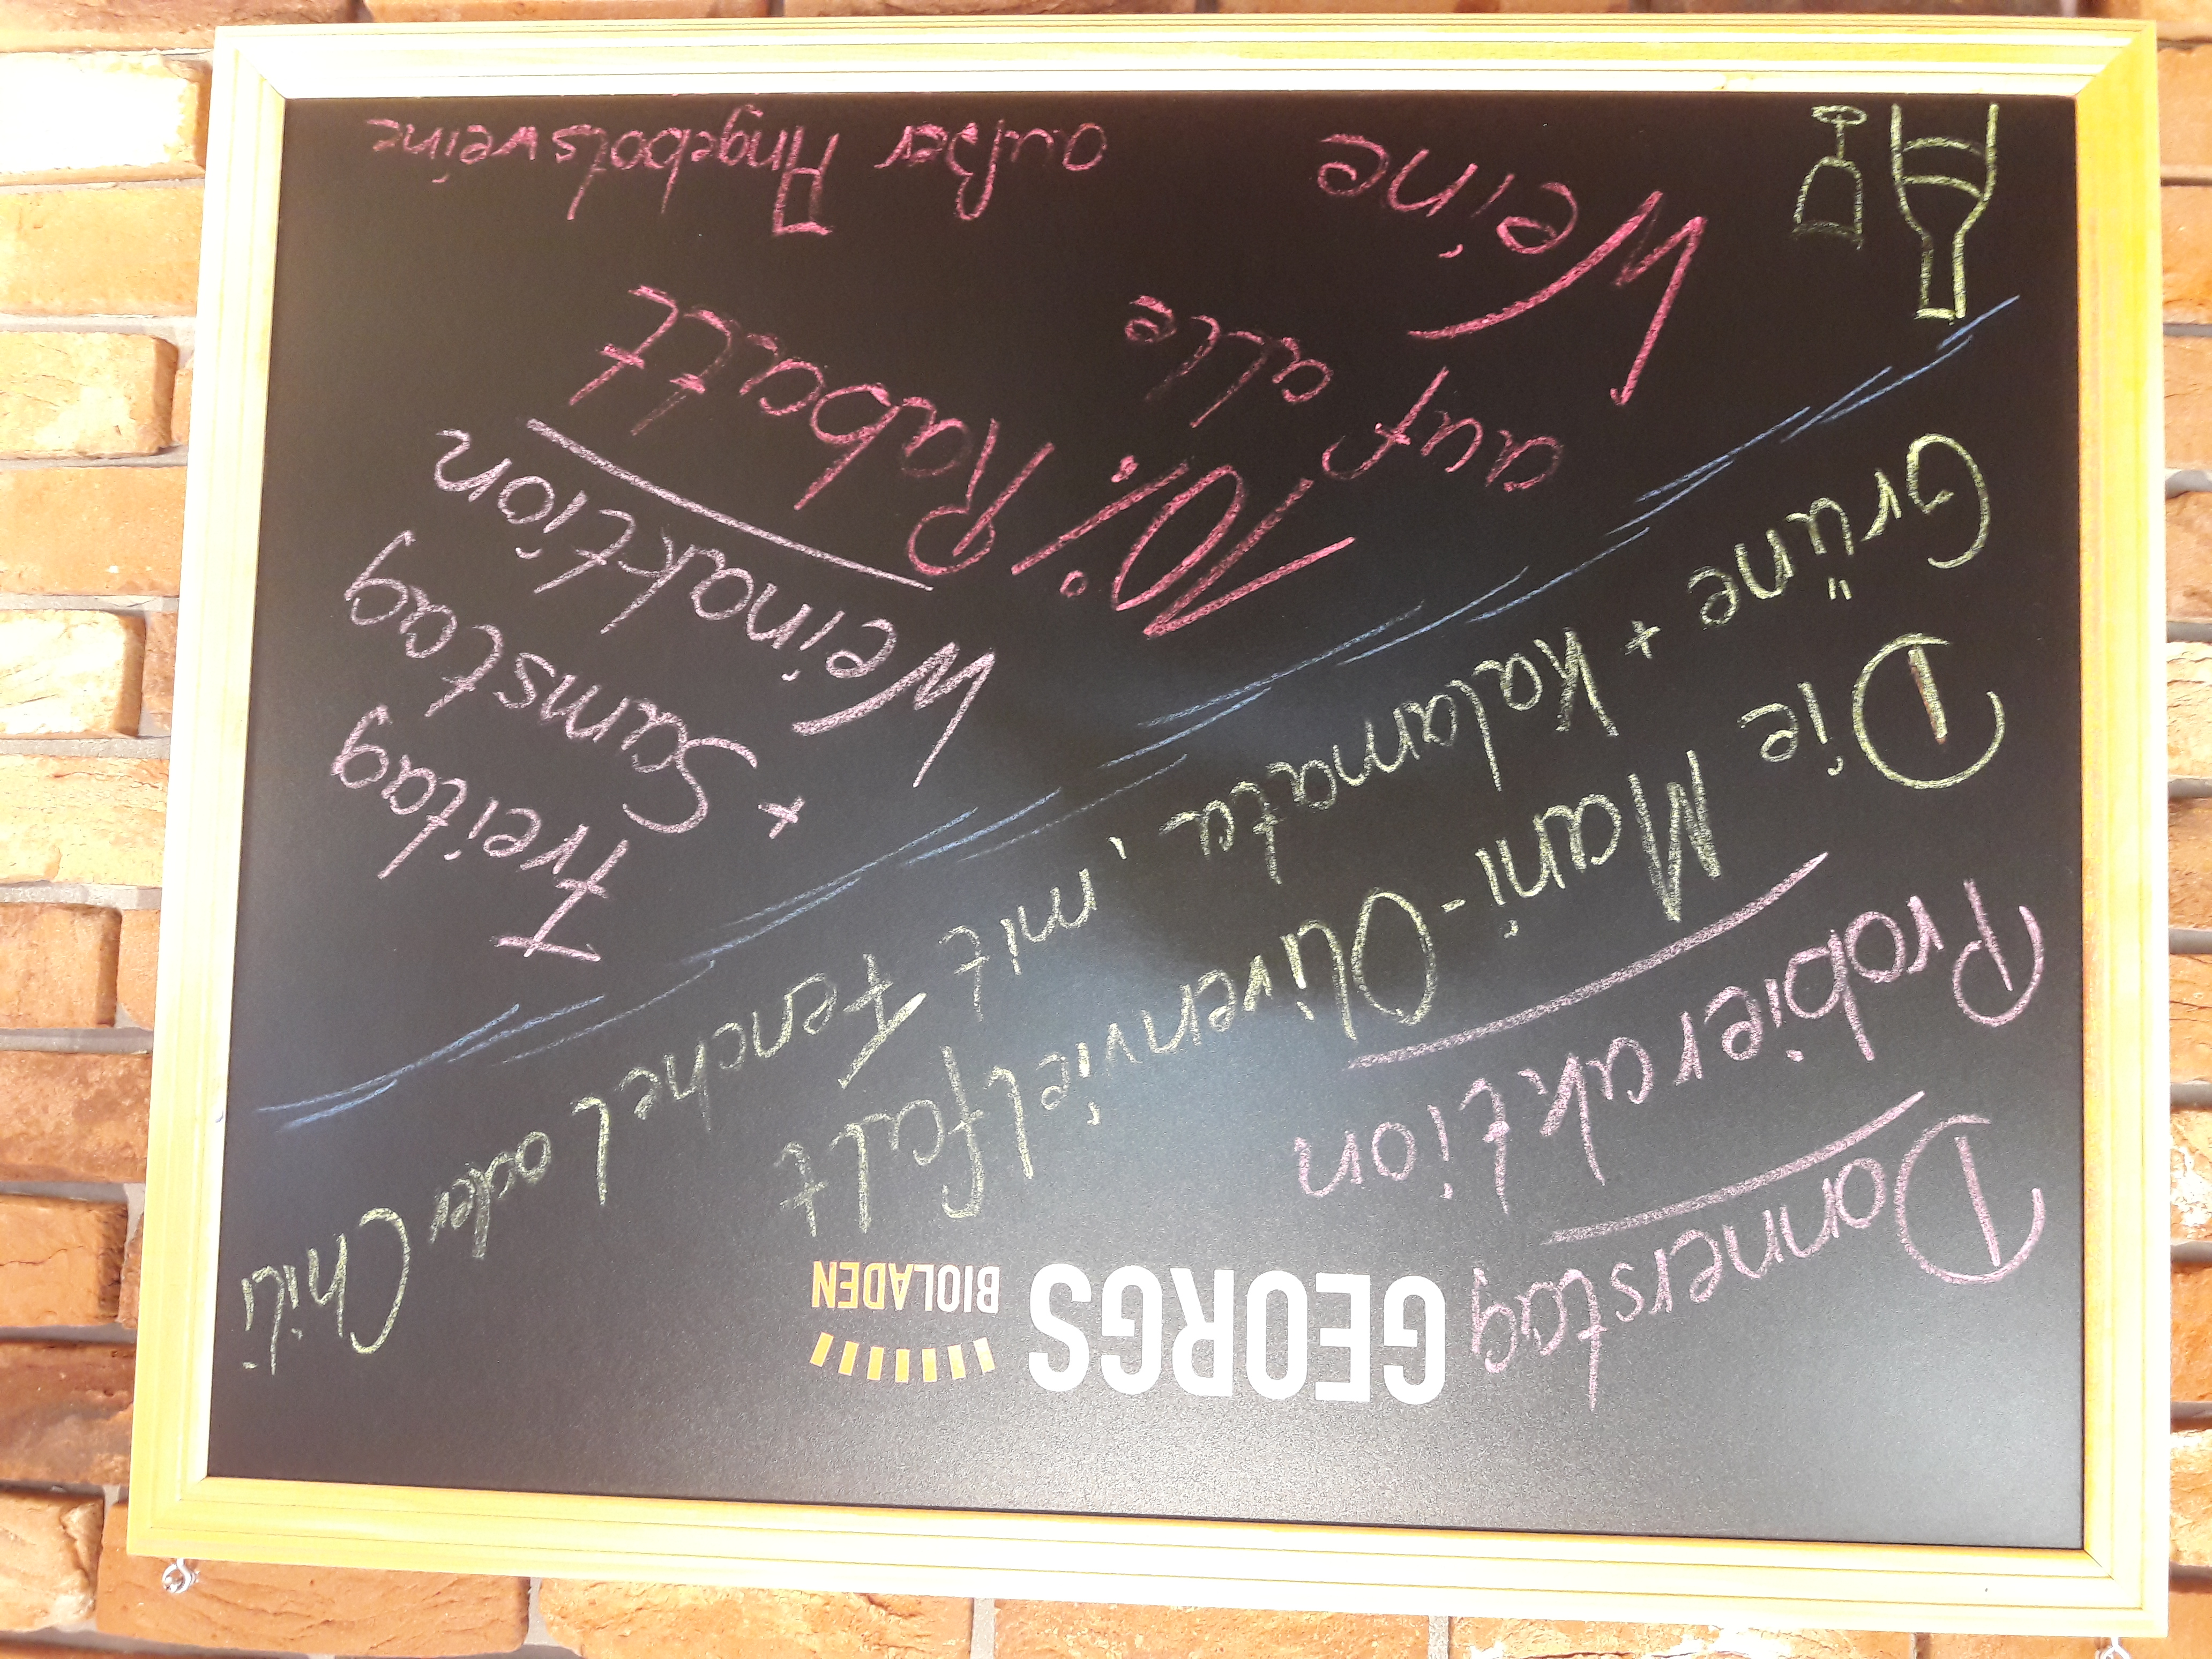 GEORGS
BIOLADEN
Donnerstag
Probieraktion
Die Mani-Olivenvielfalt
Grüne + Kalamata, mit Fenchel oder Chili
Freitag
+ Samstag
Weinaktion
10% Rabatt
auf alle
Weine
außer Angebotsweine